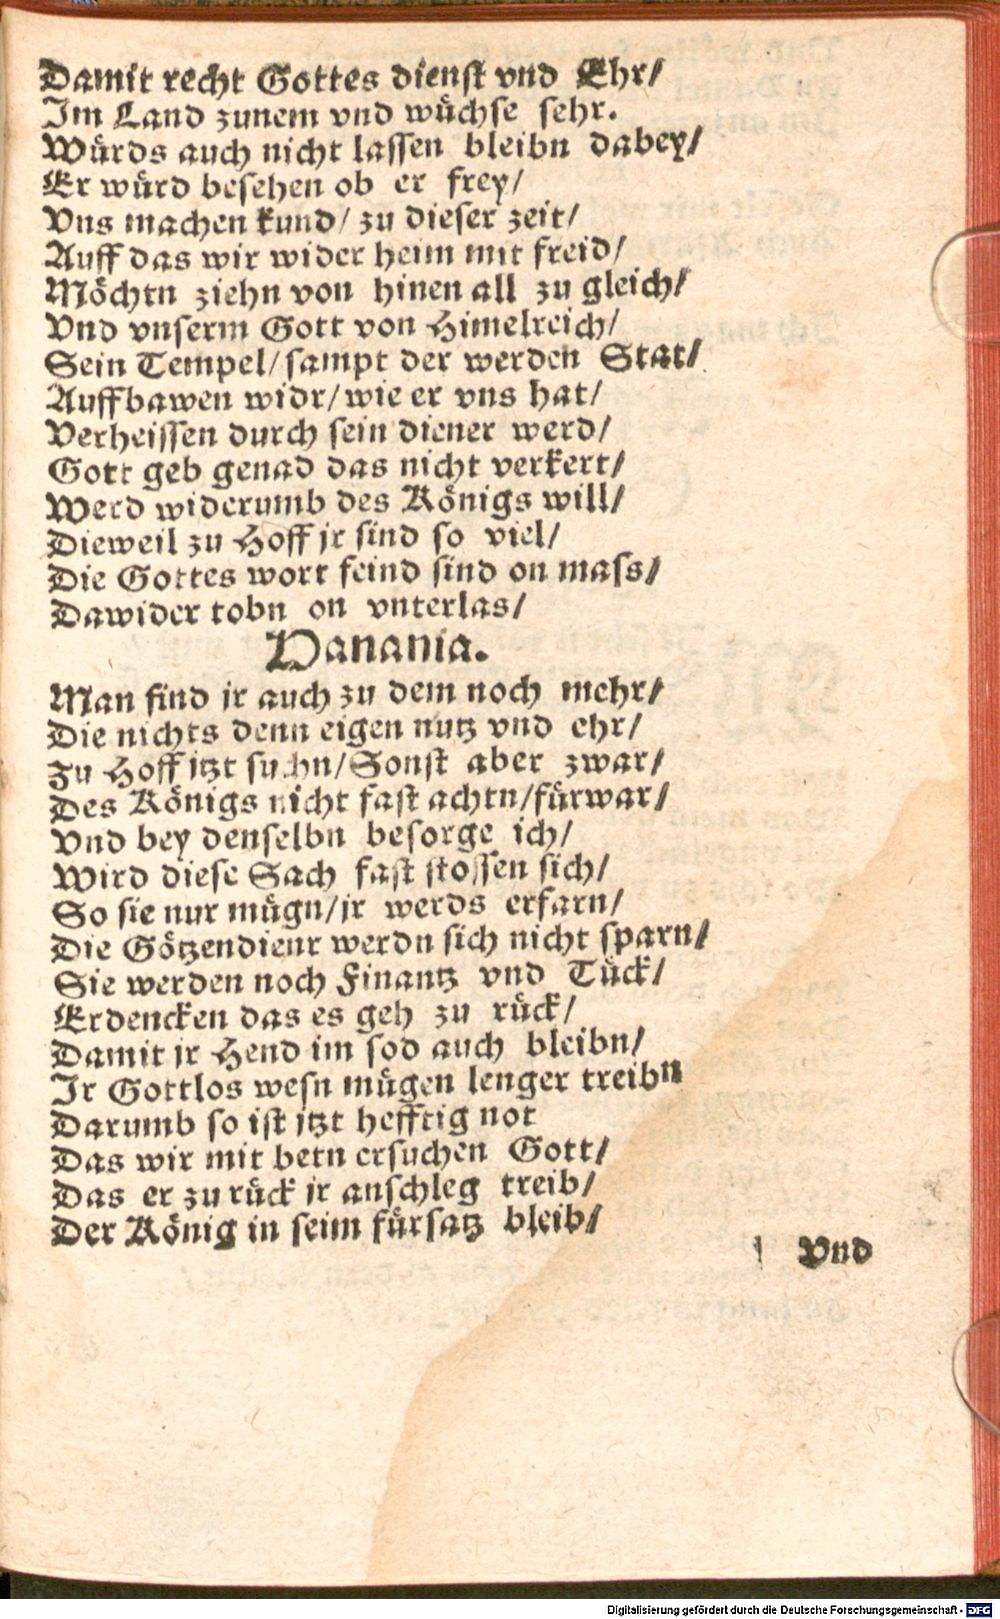 Damit recht Gottes dienst vnd Ehr/
Im Land zunem vnd wüchse sehr.
Würds auch nicht lassen bleibn dabey/
Er würd besehen ob er frey/
Vns machen kund/ zu dieser zeit/
Auff das wir wider heim mit freid/
Möchtn ziehn von hinen all zu gleich/
Vnd vnserm Gott von Himelreich/
Sein Tempel/ sampt der werden Stat/
Auffbawen widr/ wie er vns hat/
Verheissen durch sein diener werd/
Gott geb genad das nicht verkert/
Werd widerumb des Königs will/
Dieweil zu Hoff jr sind so viel/
Die Gottes wort feind sind on mass/
Dawider tobn on vnterlas/
Hanania.
Man find jr auch zu dem noch mehr/
Die nichts denn eigen nutz vnd ehr/
Zu Hoff itzt suchn/ Sonst aber zwar/
Des Königs nicht fast achtn/ fürwar/
Vnd bey denselbn besorge ich/
Wird diese Sach fast stossen sich/
So sie nur mügn/ jr werds erfarn/
Die Götzendienr werdn sich nicht sparn/
Sie werden noch Finantz vnd Tück/
Erdencken das es geh zu rück/
Damit jr Hend im sod auch bleibn/
Ir Gottlos wesn mügen lenger treibn
Darumb so ist itzt hefftig not
Das wir mit betn ersuchen Gott/
Das er zu rück jr anschleg treib/
Der König in seim fürsatz bleib/
Vnd
Digitalisierung gefördert durch die Deutsche Forschungsgemeinschaft - DFG